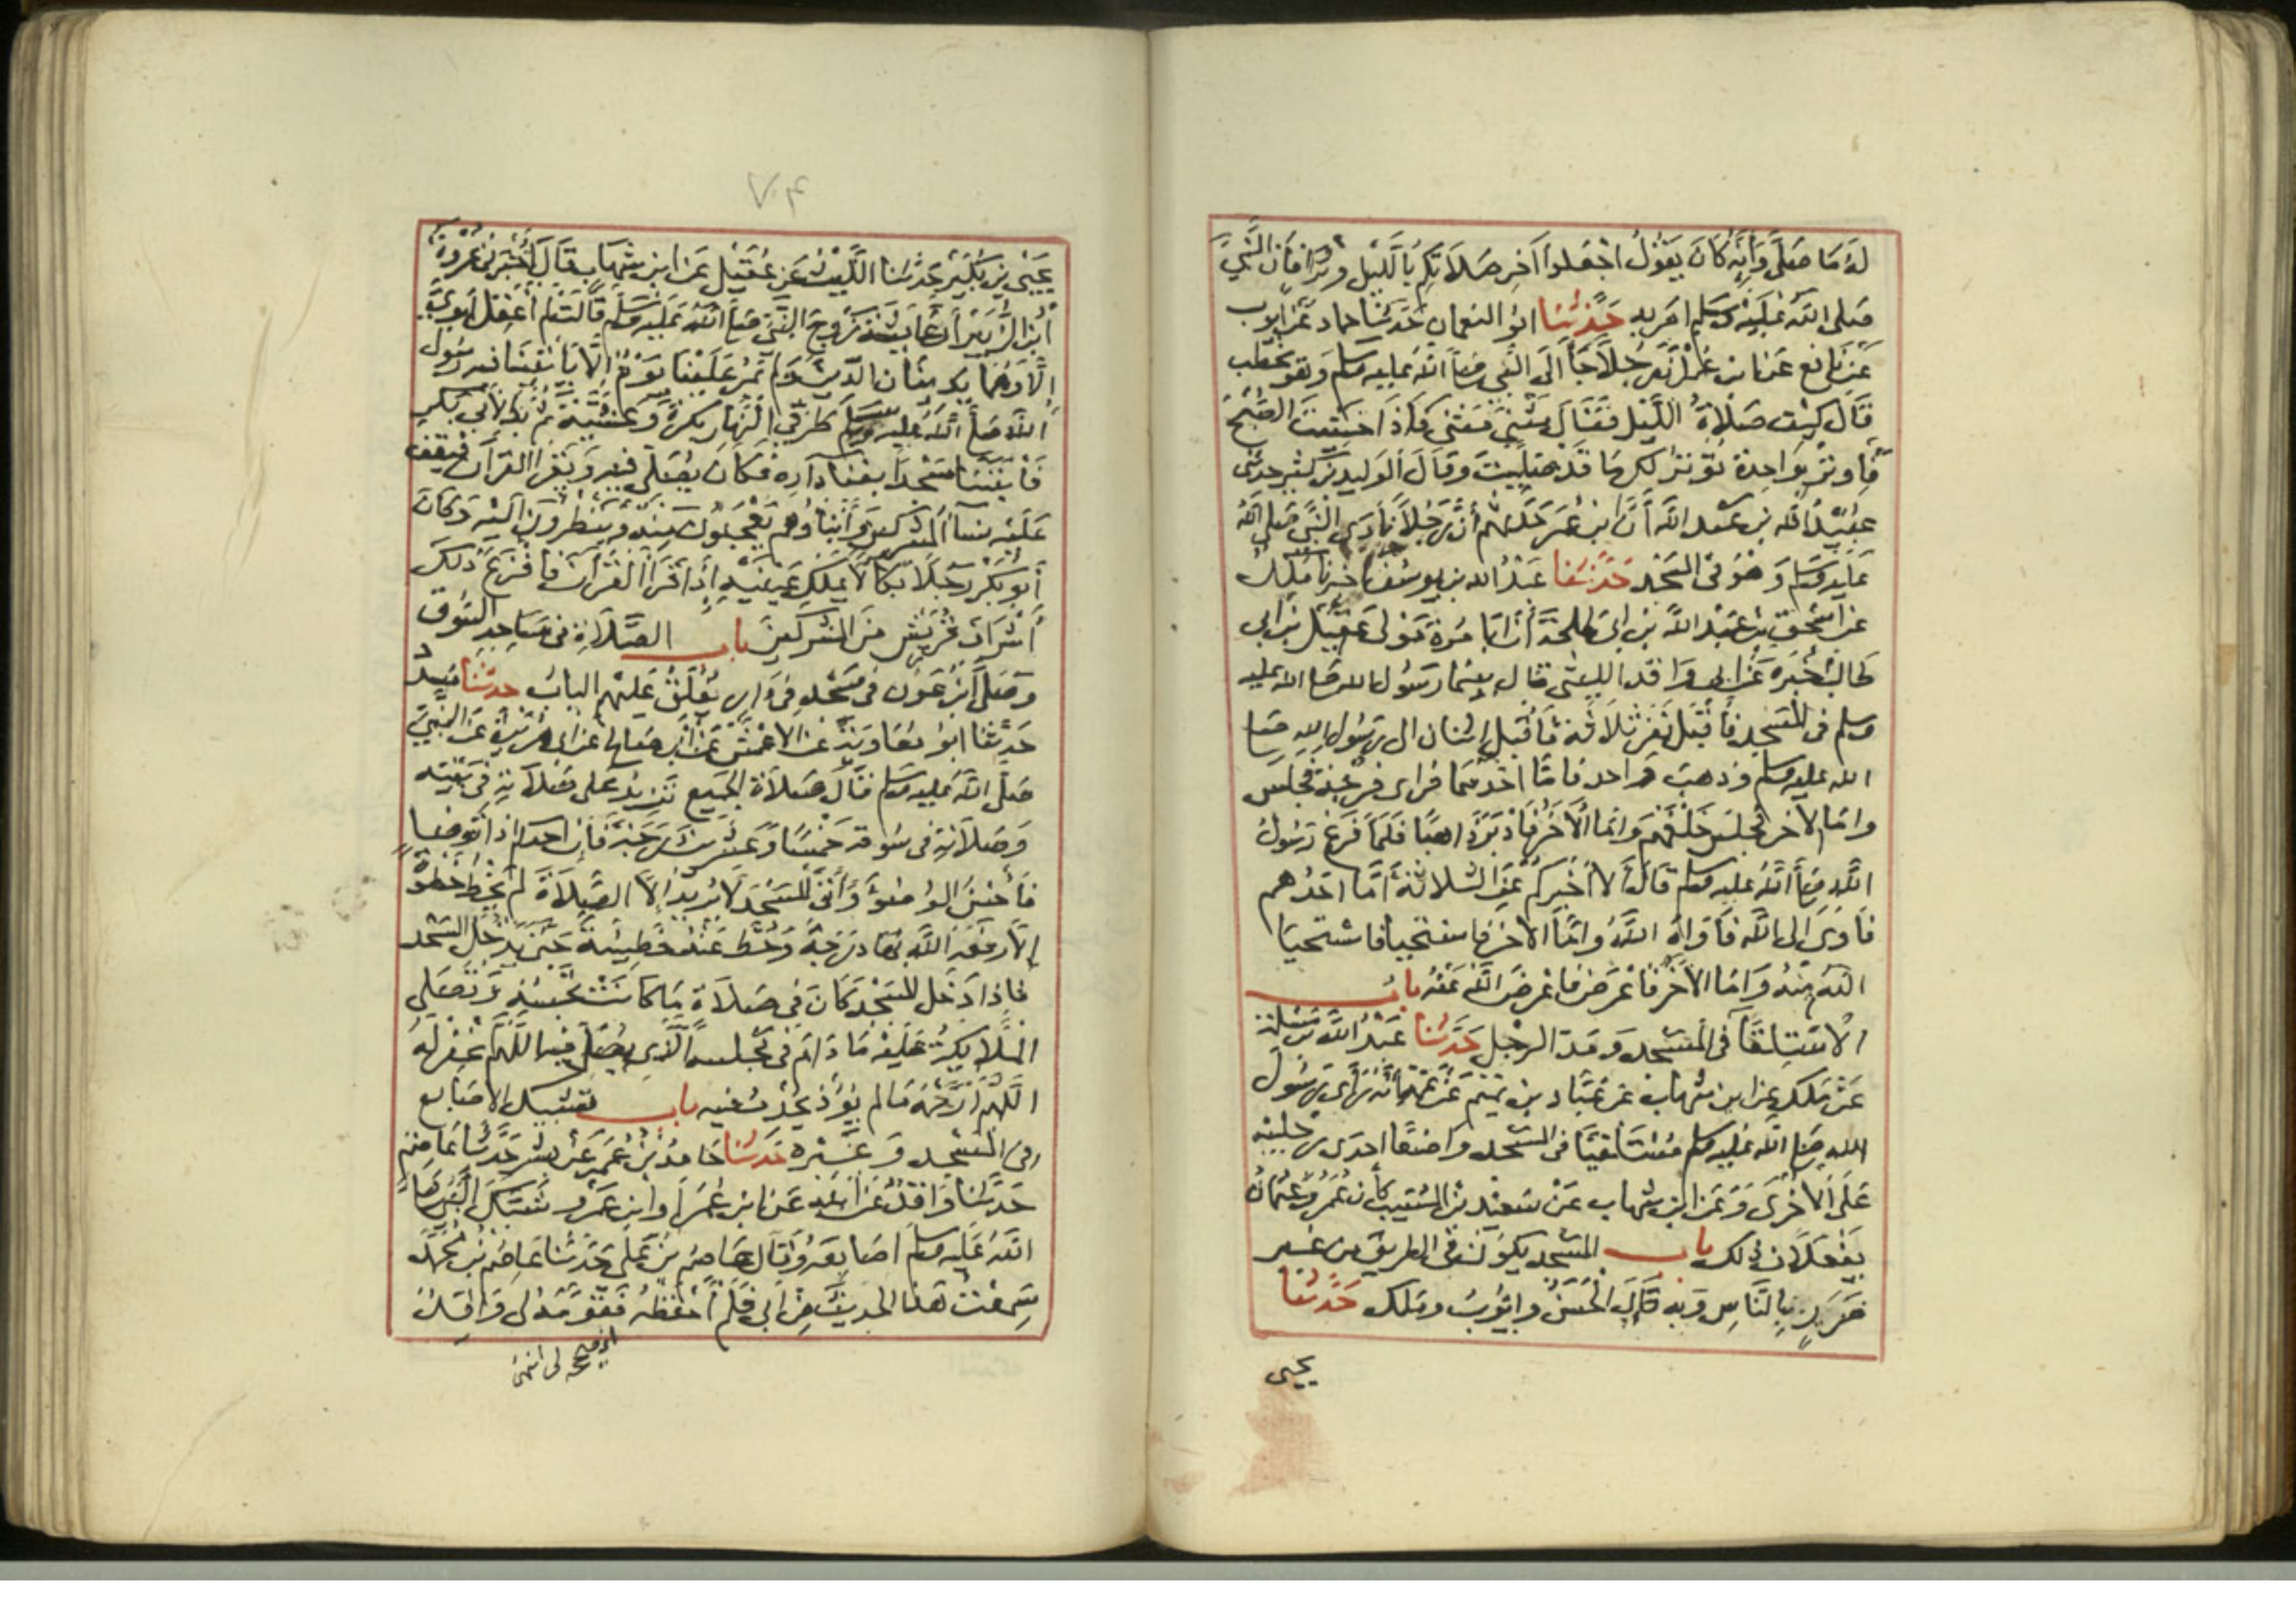 له ما صلى وانه كان يقول اجعلوا اخر صلاتكم بالليل وترا فان النبي
صلى الله عليه وسلم امر به حدثنا ابو النعمان حدثنا حماد عن ايوب
عن نافع عن ابن عمر ان رجلا جا الى النبي صلى الله عليه وسلم وهو يخطب
فقال كيف صلاة الليل فقال مثنى مثنى فاذا خشيت الصبح
فاوتر بواحدة توتر لك ما قد صليت وقال الوليد بن كثير حدثني
عبيد الله بن عبد الله ان ابن عمر حدثهم ان رجلا نادى النبي صلى الله
عليه وسلم وهو في المسجد حدثنا عبد الله بن يوسف اخبرنا ملك
عن اسحق بن عبد الله بن ابي طلحة ان ابا مرة مولى عقيل بن ابي
طالب اخبره عن ابي واقد الليثي قال بينما رسول الله صلى الله عليه
وسلم في المسجد فاقبل نفر ثلاثة فاقبل اثنان الى رسول الله صلى
الله عليه وسلم وذهب واحد فاما احدهما فراى فرجة فجلس
واما الاخر فجلس خلفهم واما الاخر فادبر ذاهبا فلما فرغ رسول
الله صلى الله عليه وسلم قال الا اخبركم عن الثلاثة اما احدهم
فاوى الى الله فاواه الله واما الاخر فاستحيا فاستحيا
الله منه واما الاخر فاعرض فاعرض الله عنه باب
الاستلقا في المسجد ومد الرجل حدثنا عبد الله بن مسلمة
عن ملك عن ابن شهاب عن عباد بن تميم عن عمه انه راى رسول
الله صلى الله عليه وسلم مستلقيا في المسجد واضعا احدى رجليه
على الاخرى وعن ابن شهاب عن سعيد بن المسيب كان عمر وعثمان
يفعلان ذلك باب المسجد يكون في الطريق من غير
ضرر بالناس وبه قال الحسن وايوب وملك حدثنا
يحيى
٧٠٤
يحيى بن بكير حدثنا الليث عن عقيل عن ابن شهاب قال اخبرني عروة
ابن الزبير ان عايشة زوج النبي صلى الله عليه وسلم قالت لم اعقل ابوي
الا وهما يدينان الدين ولم يمر علينا يوم الا ياتينا فيه رسول
الله صلى الله عليه وسلم طرفي النهار بكرة وعشية ثم بدا لابي بكر
فابتنى مسجدا بفنا داره فكان يصلي فيه ويقرا القران فيقف
عليه نسا المشركين وابناوهم يعجبون منه وينظرون اليه وكان
ابو بكر رجلا بكا لا يملك عينيه اذا قرا القران فافزع ذلك
اشراف قريش من المشركين باب الصلاة في مساجد السوق
وصلى ابن عون في مسجد في دار يغلق عليهم الباب حدثنا مسدد
حدثنا ابو معاوية عن الاعمش عن ابي صالح عن ابي هريرة عن النبي
صلى الله عليه وسلم قال صلاة الجميع تزيد على صلاته في بيته
وصلاته في سوقه خمسا وعشرين درجة فان احدكم اذا توضا
فاحسن الوضوء واتى المسجد لا يريد الا الصلاة لم يخط خطوة
الا رفعه الله بها درجة وحط عنه خطيئة حتى يدخل المسجد
فاذا دخل المسجد كان في صلاة ما كانت تحبسه وتصلي
الملايكة عليه ما دام في مجلسه الذي يصلي فيه اللهم اغفر له
اللهم ارحمه ما لم يؤذ يحدث فيه باب تشبيك الاصابع
في المسجد وغيره حدثنا حامد بن عمر عن بشر حدثنا عاصم
حدثنا واقد عن ابيه عن ابن عمر او ابن عمرو شبك النبي صلى
الله عليه وسلم اصابعه وقال عاصم بن علي حدثنا عاصم بن محمد
سمعت هذا الحديث من ابي فلم احفظه فقومه لي واقد